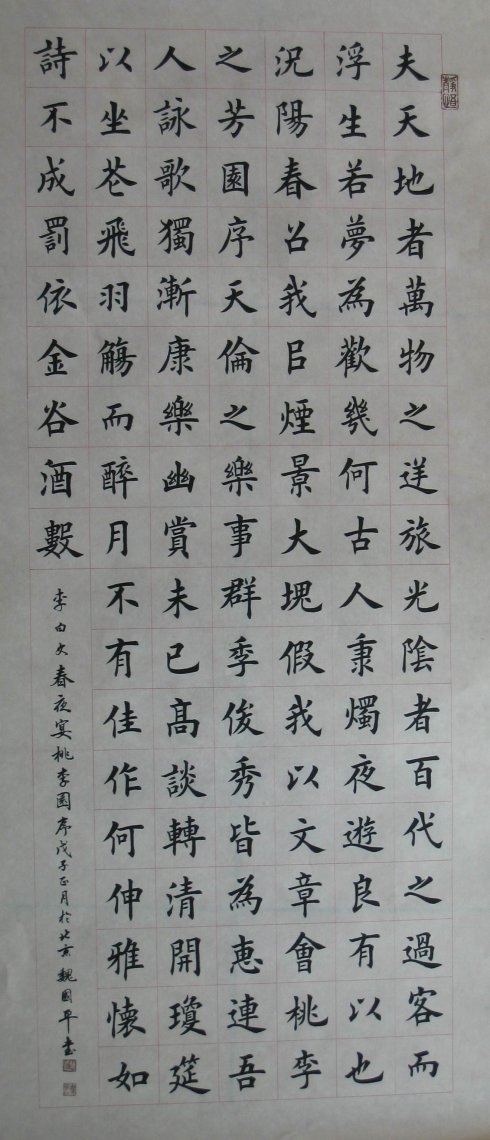 夫天地者萬物之逆旅光陰者百代之過客而
浮生若夢為歡幾何古人秉燭夜遊良有以也
況陽春召我㠯煙景大塊假我以文章會桃李
之芳園序天倫之樂事群季俊秀皆為惠連吾
人詠歌獨漸康樂幽賞未已高談轉清開瓊筵
以坐花飛羽觴而醉月不有佳作何伸雅懷如
詩不成罰依金谷酒數
李白文春夜宴桃李園序戊子正月於北京魏國平書